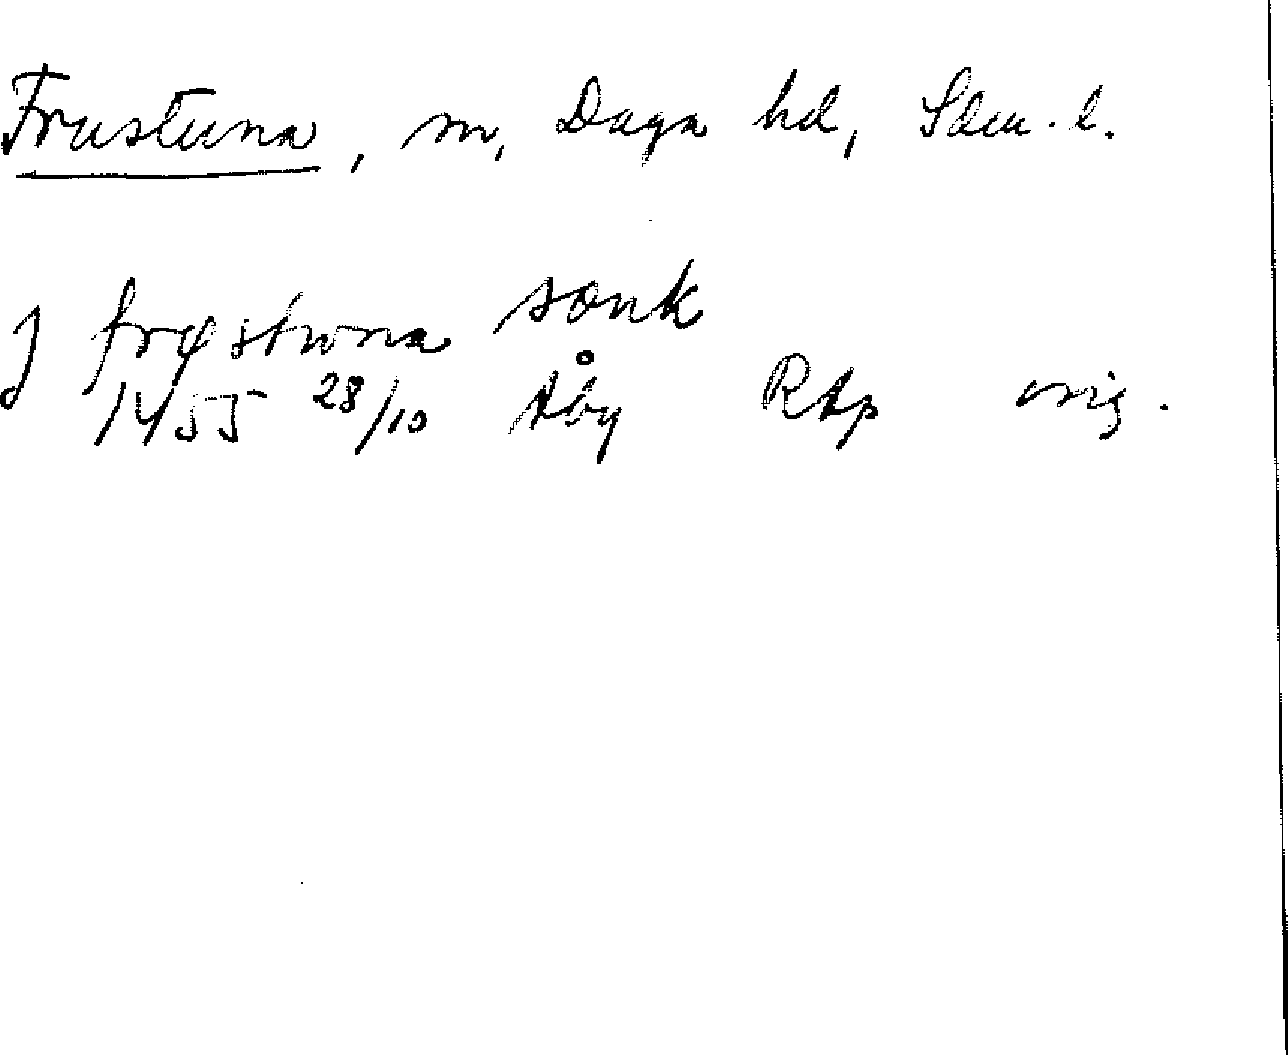 Frustuna, sn, Daga hd, Södm. l.
J frøstwna sonk
1455 28/10 Åby RAp orig.